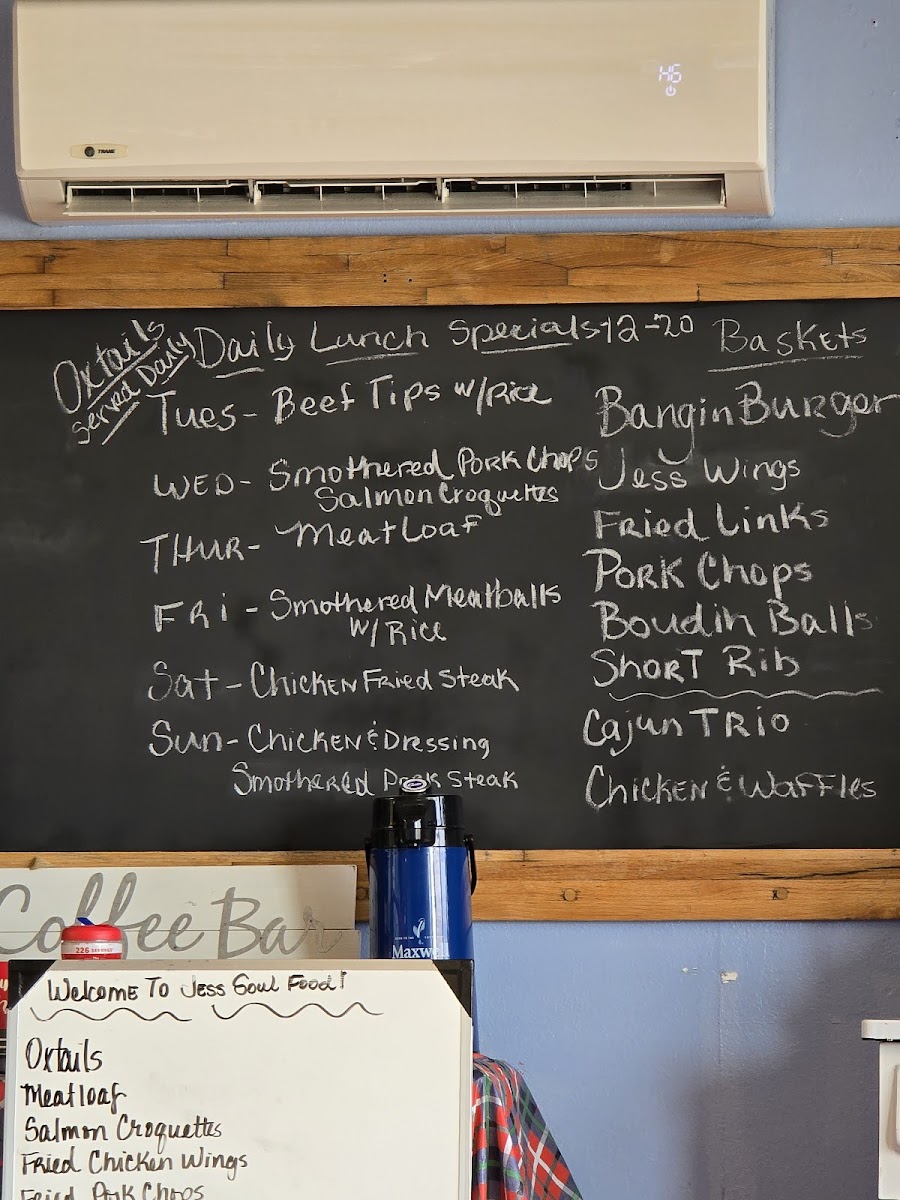 H6
TRANE
Oxtails
Served Daily
Daily Lunch Specials-12-20
Tues- Beef Tips w/Rice
WED- Smothered Pork Chops
Salmon Croquettes
THUR- Meat Loaf
FRi - Smothered Meatballs
W/ Rice
Sat - Chicken Fried Steak
Sun- Chicken & Dressing
Smothered Pork Steak
Baskets
Bangin Burger
Jess Wings
Fried Links
Pork Chops
Boudin Balls
Short Rib
Cajun TRIO
Chicken & Waffles
Coffee Bar
226 SERVINGS
Maxwe
Welcome To Jess Soul Food!
Oxtails
Meatloaf
Salmon Croquettes
Fried Chicken Wings
Fried Pork Chops